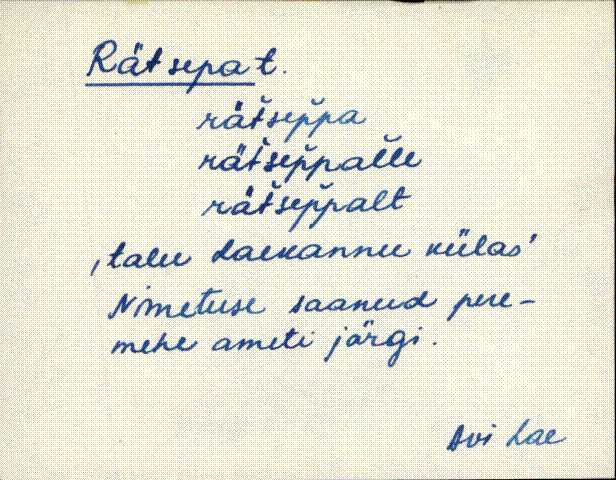 Rätsepat.
rät̆sep̆pa
rät̆sep̆pal̆le
rät̆sep̆palt
‚talu Laekannu külas'
Nimetuse saanud pere-
mehe ameti järgi.
Avi Lae